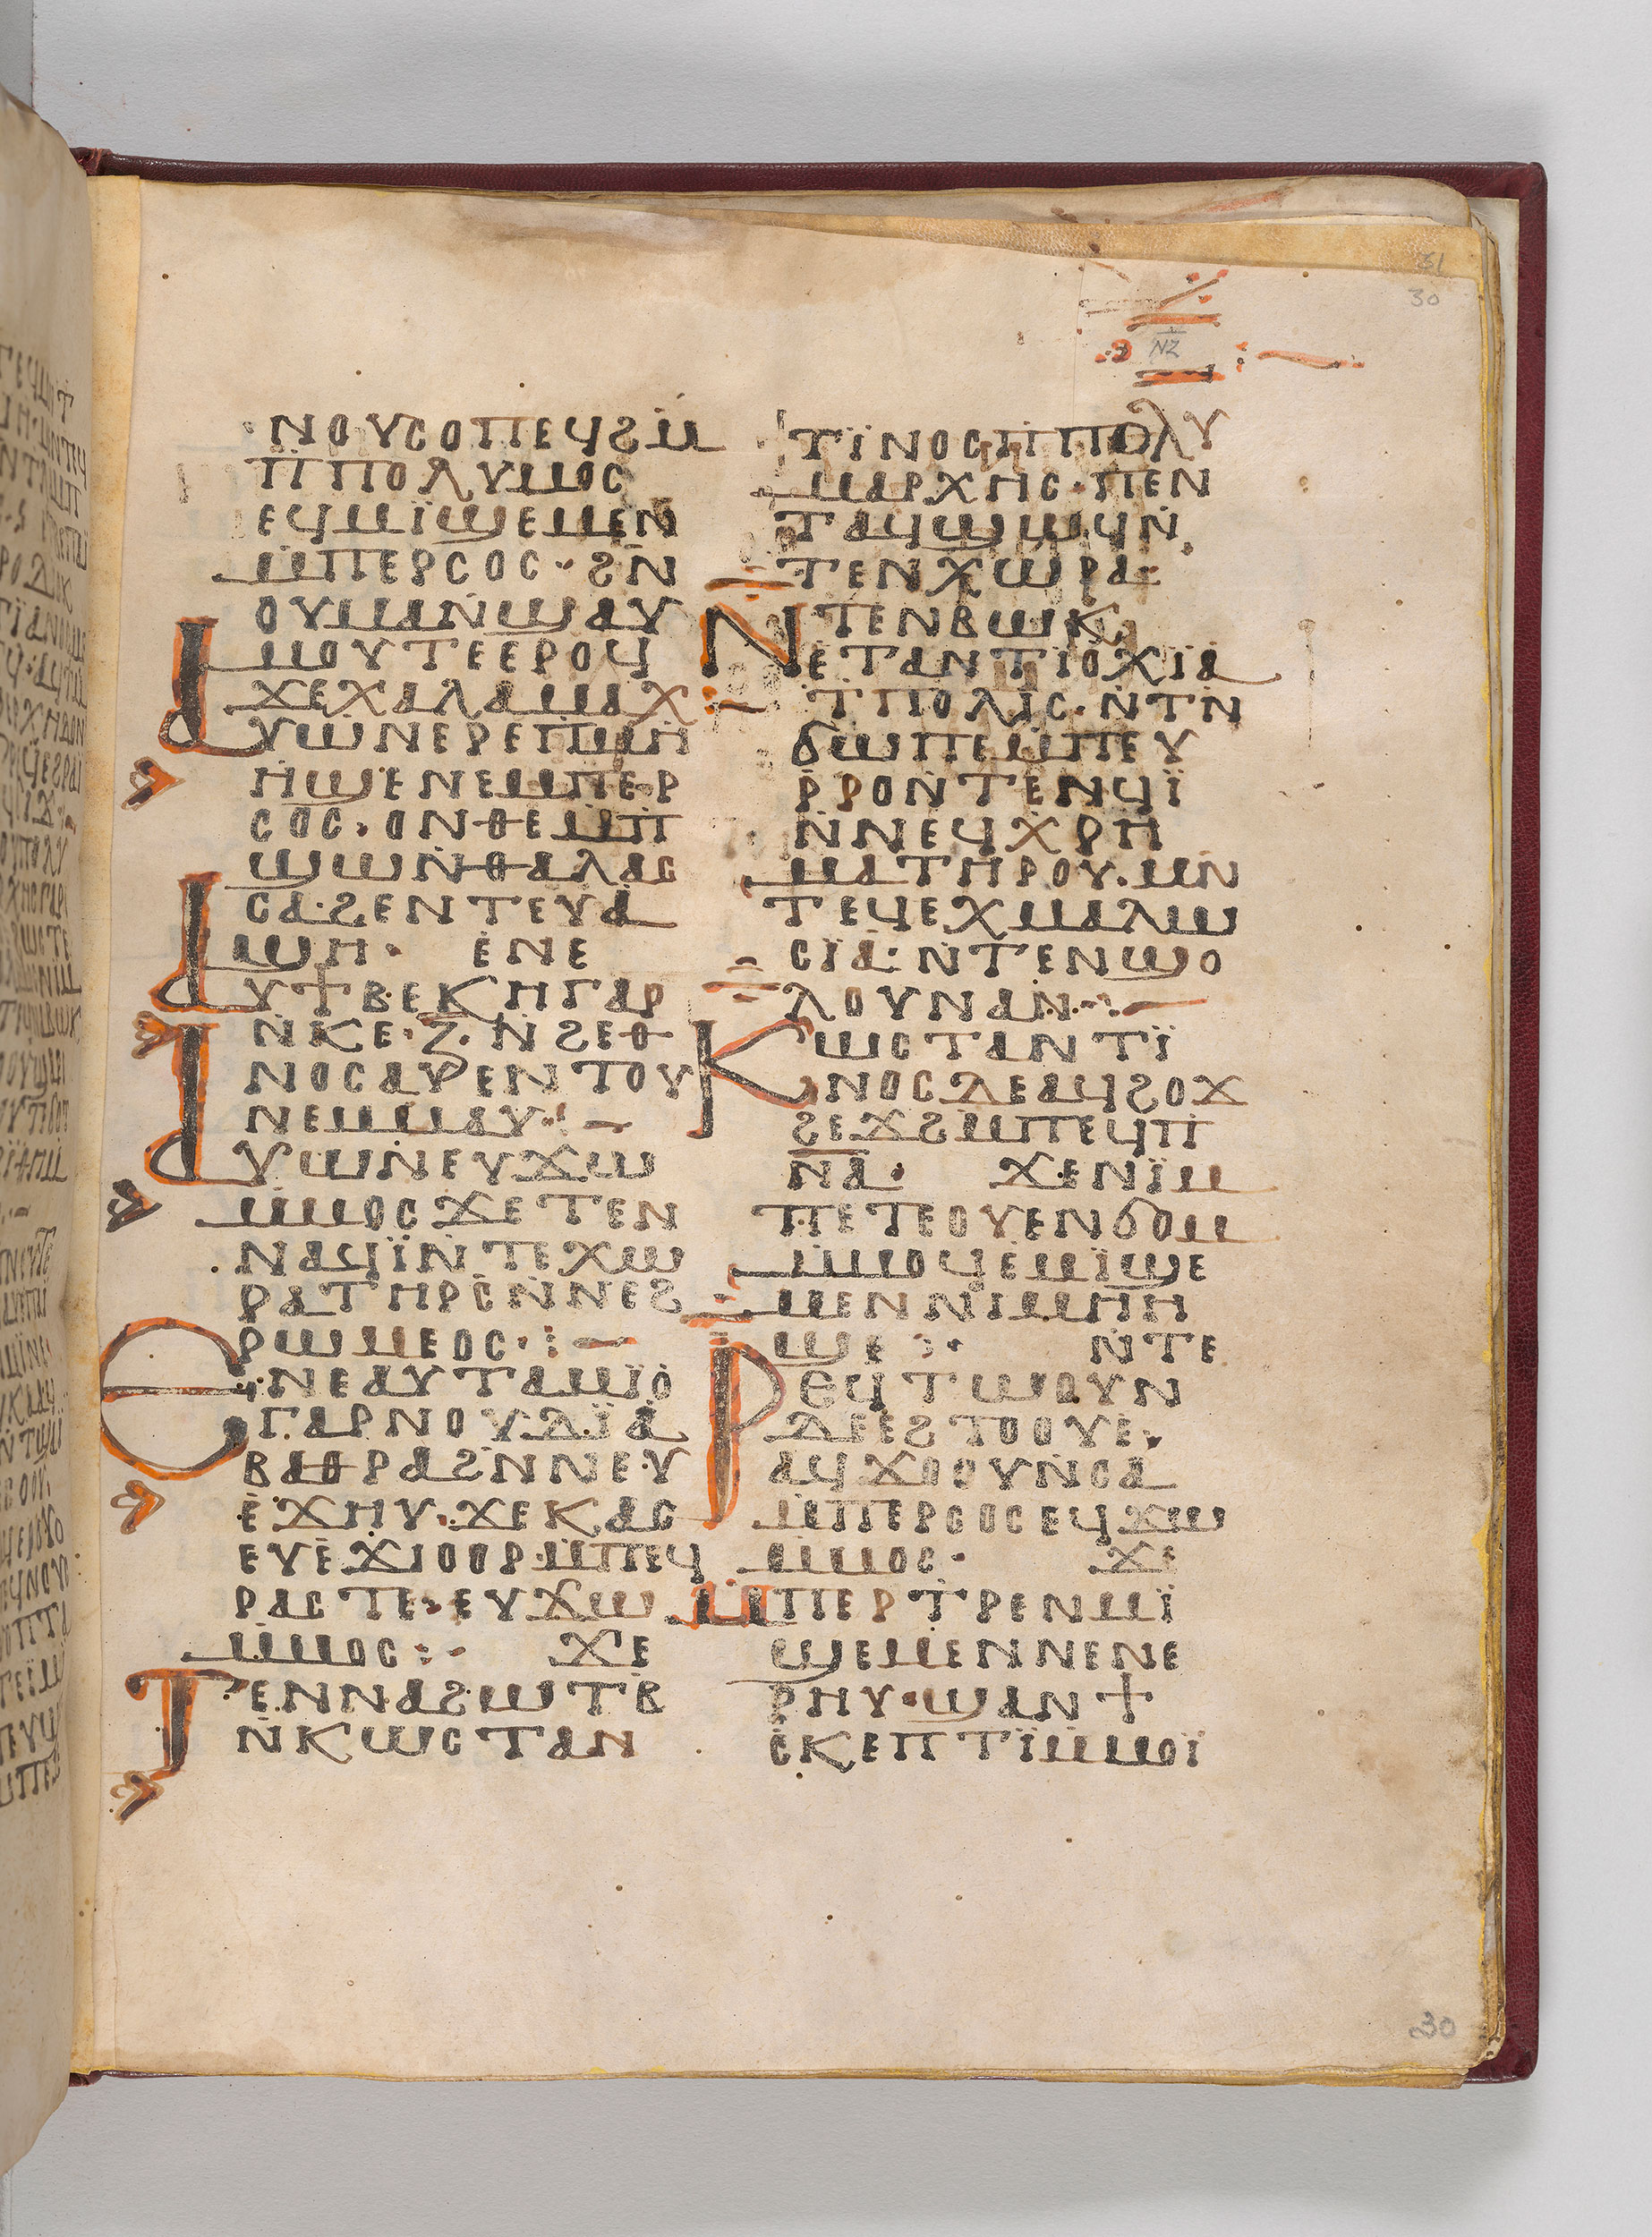 31
30
ⲚⲌ
ⲚⲞⲨⲤⲞⲠⲈϤϨⲘ
ⲠⲠⲞⲖⲨⲘⲞⲤ
ⲈϤⲘⲒ̈ϢⲈⲘⲈⲚ
ⲘⲠⲈⲢⲤⲞⲤ·ϨⲚ
ⲞⲨⲘⲀⲚϢⲀⲨ
ⲘⲞⲨⲦⲈⲈⲢⲞϤ
ϪⲈⲬⲀⲖⲀⲘⲀⲬ
ⲀⲨⲰⲚⲈⲢⲈⲠⲘⲎ
ⲎϢⲈⲚⲈⲘⲠⲈⲢ
ⲤⲞⲤ·ⲞⲚⲐⲈⲘⲠ
ϢⲰⲚⲐⲀⲖⲀⲤ
ⲤⲀ·ϨⲈⲚⲦⲈⲨⲀ
ϢⲎ· ⲈⲚⲈ
ⲀⲨϮⲂⲈⲔⲎⲄⲀⲢ
ⲚⲔⲈ·Ⲍ·ⲚϨⲈⲐ
ⲚⲞⲤⲀⲨⲈⲚⲦⲞⲨ
ⲚⲈⲘⲘⲀⲨ·:—
ⲀⲨⲰⲚⲈⲨϪⲰ
ⲘⲘⲞⲤϪⲈⲦⲈⲚ
ⲚⲀϤⲒ̈ⲚⲦⲈⲬⲰ
ⲢⲀⲦⲎⲢⲤⲚⲚⲈϨ
ⲢⲰⲘⲈⲞⲤ·:—
ⲈⲚⲈⲀⲨⲦⲀⲘⲒ̈Ⲟ
ⲄⲀⲢⲚⲞⲨⲆⲒ̈Ⲁ
ⲂⲀⲐⲢⲀϨⲚⲚⲈⲨ
ⲈϪⲎⲨ·ϪⲈⲔⲀⲤ
ⲈⲨⲈϪⲒⲞⲞⲢⲘⲠⲈϤ
ⲢⲀⲤⲦⲈ·ⲈⲨϪⲰ
ⲘⲘⲞⲤ:· ϪⲈ
ⲦⲈⲚⲚⲀϨⲰⲦⲂ
ⲚⲔⲰⲤⲦⲀⲚ
ⲦⲒ̈ⲚⲞⲤⲠⲠⲞⲖⲨ
ⲘⲀⲢⲬⲎⲤ·ⲠⲈⲚ
ⲦⲀϤϢⲰϤⲚ
ⲦⲈⲚⲬⲰⲢⲀ
ⲚⲦⲈⲚⲂⲰⲔ
ⲈⲦⲀⲚⲦⲒⲞⲬⲒ̈Ⲁ
ⲦⲠⲞⲖⲒⲤ·ⲚⲦⲚ
ϬⲰⲠⲈⲘⲠⲈⲨ
ⲢⲢⲞⲚⲦⲈⲚϤⲒ̈
ⲚⲚⲈϤⲬⲢⲎ
ⲘⲀⲦⲎⲢⲞⲨ·ⲘⲚ
ⲦⲈϤⲈⲬⲘⲀⲖⲰ
ⲤⲒ̈Ⲁ·ⲚⲦⲈⲚϢⲞ
ⲖⲞⲨⲚⲀⲚ·:—
ⲔⲰⲤⲦⲀⲚⲦⲒ̈
ⲚⲞⲤⲆⲈⲀϤϨⲞϪ
ϨⲈϪϨⲘⲠⲈϤⲠ
ⲚⲀ· ϪⲈⲚⲒ̈Ⲙ
ⲠⲈⲦⲈⲞⲨⲈⲚϬⲞⲘ
ⲘⲘⲞϤⲈⲘⲒ̈ϢⲈ
ⲘⲈⲚⲚⲒⲘⲎⲎ
ϢⲈ :· ⲚⲦⲈ
ⲢⲈϤⲦⲰⲞⲨⲚ
ⲆⲈⲈϨⲦⲞⲞⲨⲈ·
ⲀϤϪⲞⲞⲨⲚⲤⲀ
ⲘⲠⲈⲢⲤⲞⲤⲈϤϪⲰ
ⲘⲘⲞⲤ· ϪⲈ
ⲘⲠⲈⲢⲦⲢⲈⲚⲘⲒ̈
ϢⲈⲘⲈⲚⲚⲈⲚⲈ
ⲢⲎⲨ·ϢⲀⲚϮ
ⲤⲔⲈⲠⲦⲒ̈ⲘⲘⲞⲒ̈
30